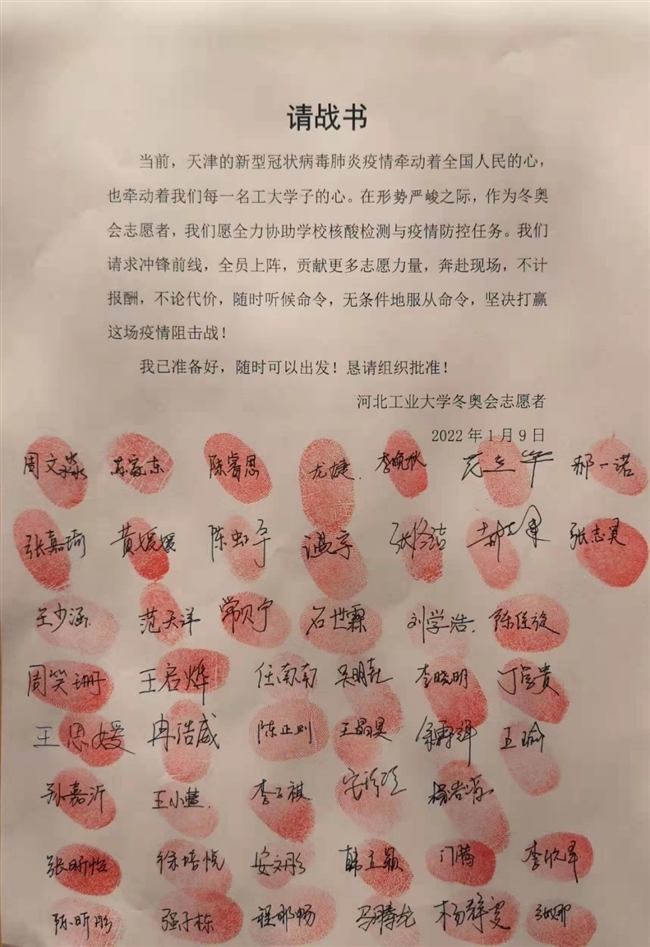 请战书
当前，天津的新型冠状病毒肺炎疫情牵动着全国人民的心，
也牵动着我们每一名工大学子的心。在形势严峻之际，作为冬奥
会志愿者，我们愿全力协助学校核酸检测与疫情防控任务。我们
请求冲锋前线，全员上阵，贡献更多志愿力量，奔赴现场，不计
报酬，不论代价，随时听候命令，无条件地服从命令，坚决打赢
这场疫情阻击战！
我已准备好，随时可以出发！恳请组织批准！
河北工业大学冬奥会志愿者
2022 年 1 月 9 日
周文淼 苏家东 陈睿思 尤婕 李晚秋 邢一诺
张嘉瑜 黄媛媛 陈虹宇 温宇 张怡洁 张志昊
王少涵 范天洋 常贝宁 石世霖 刘学浩
周笑珊 王启烨 任南南 吴明尧 李晓明
王思媛 冉浩威 陈正则 王晶昊 王瑜
孙嘉沂 王小慧 李子祺
张昕怡 徐培悦 安文彤 韩立颖 门腾 李欣泽
陈昕彤 强子栋 程郁畅 马腾龙 杨静雯 张娜